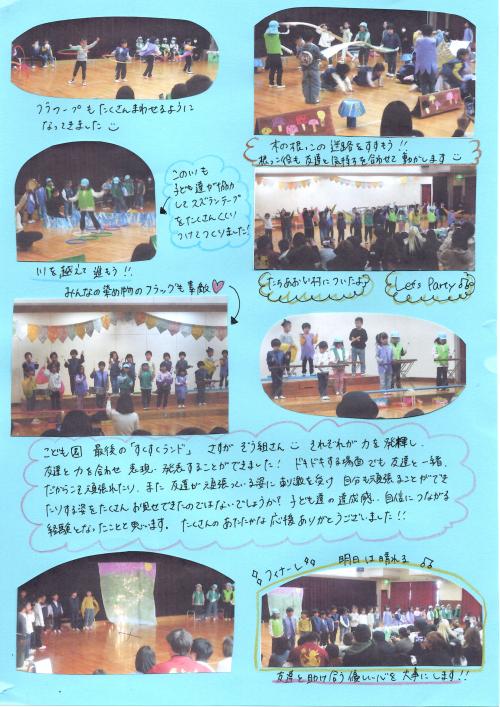 フラフープもたくさんまわせるように
なってきました
木の根っこの迷路をすすもう!!
根っこ役も友達と気持ちを合わせて動かします
この川も
子ども達が協力
してスズランテープ
をたくさんくくり
つけてつくりました!
川を越えて進もう!!
たちあおい村についたよ♪
Let's Party♪
みんなの染め物のフラッグも素敵
こども園 最後の「すくすくランド」 さすが ぞう組さん それぞれが力を発揮し、
友達と力を合わせ 表現・発表することができました! ドキドキする場面でも友達と一緒
だからこそ頑張れたり、また 友達が頑張っている姿に刺激を受け 自分も頑張ることができ
たりする姿をたくさんお見せできたのではないでしょうか? 子ども達の達成感、自信につながる
経験となったことと思います。 たくさんのあたたかな応援ありがとうございました!!
♪フィナーレ♪
明日は晴れる♪
友達と助け合う優しい心を大事にします!!